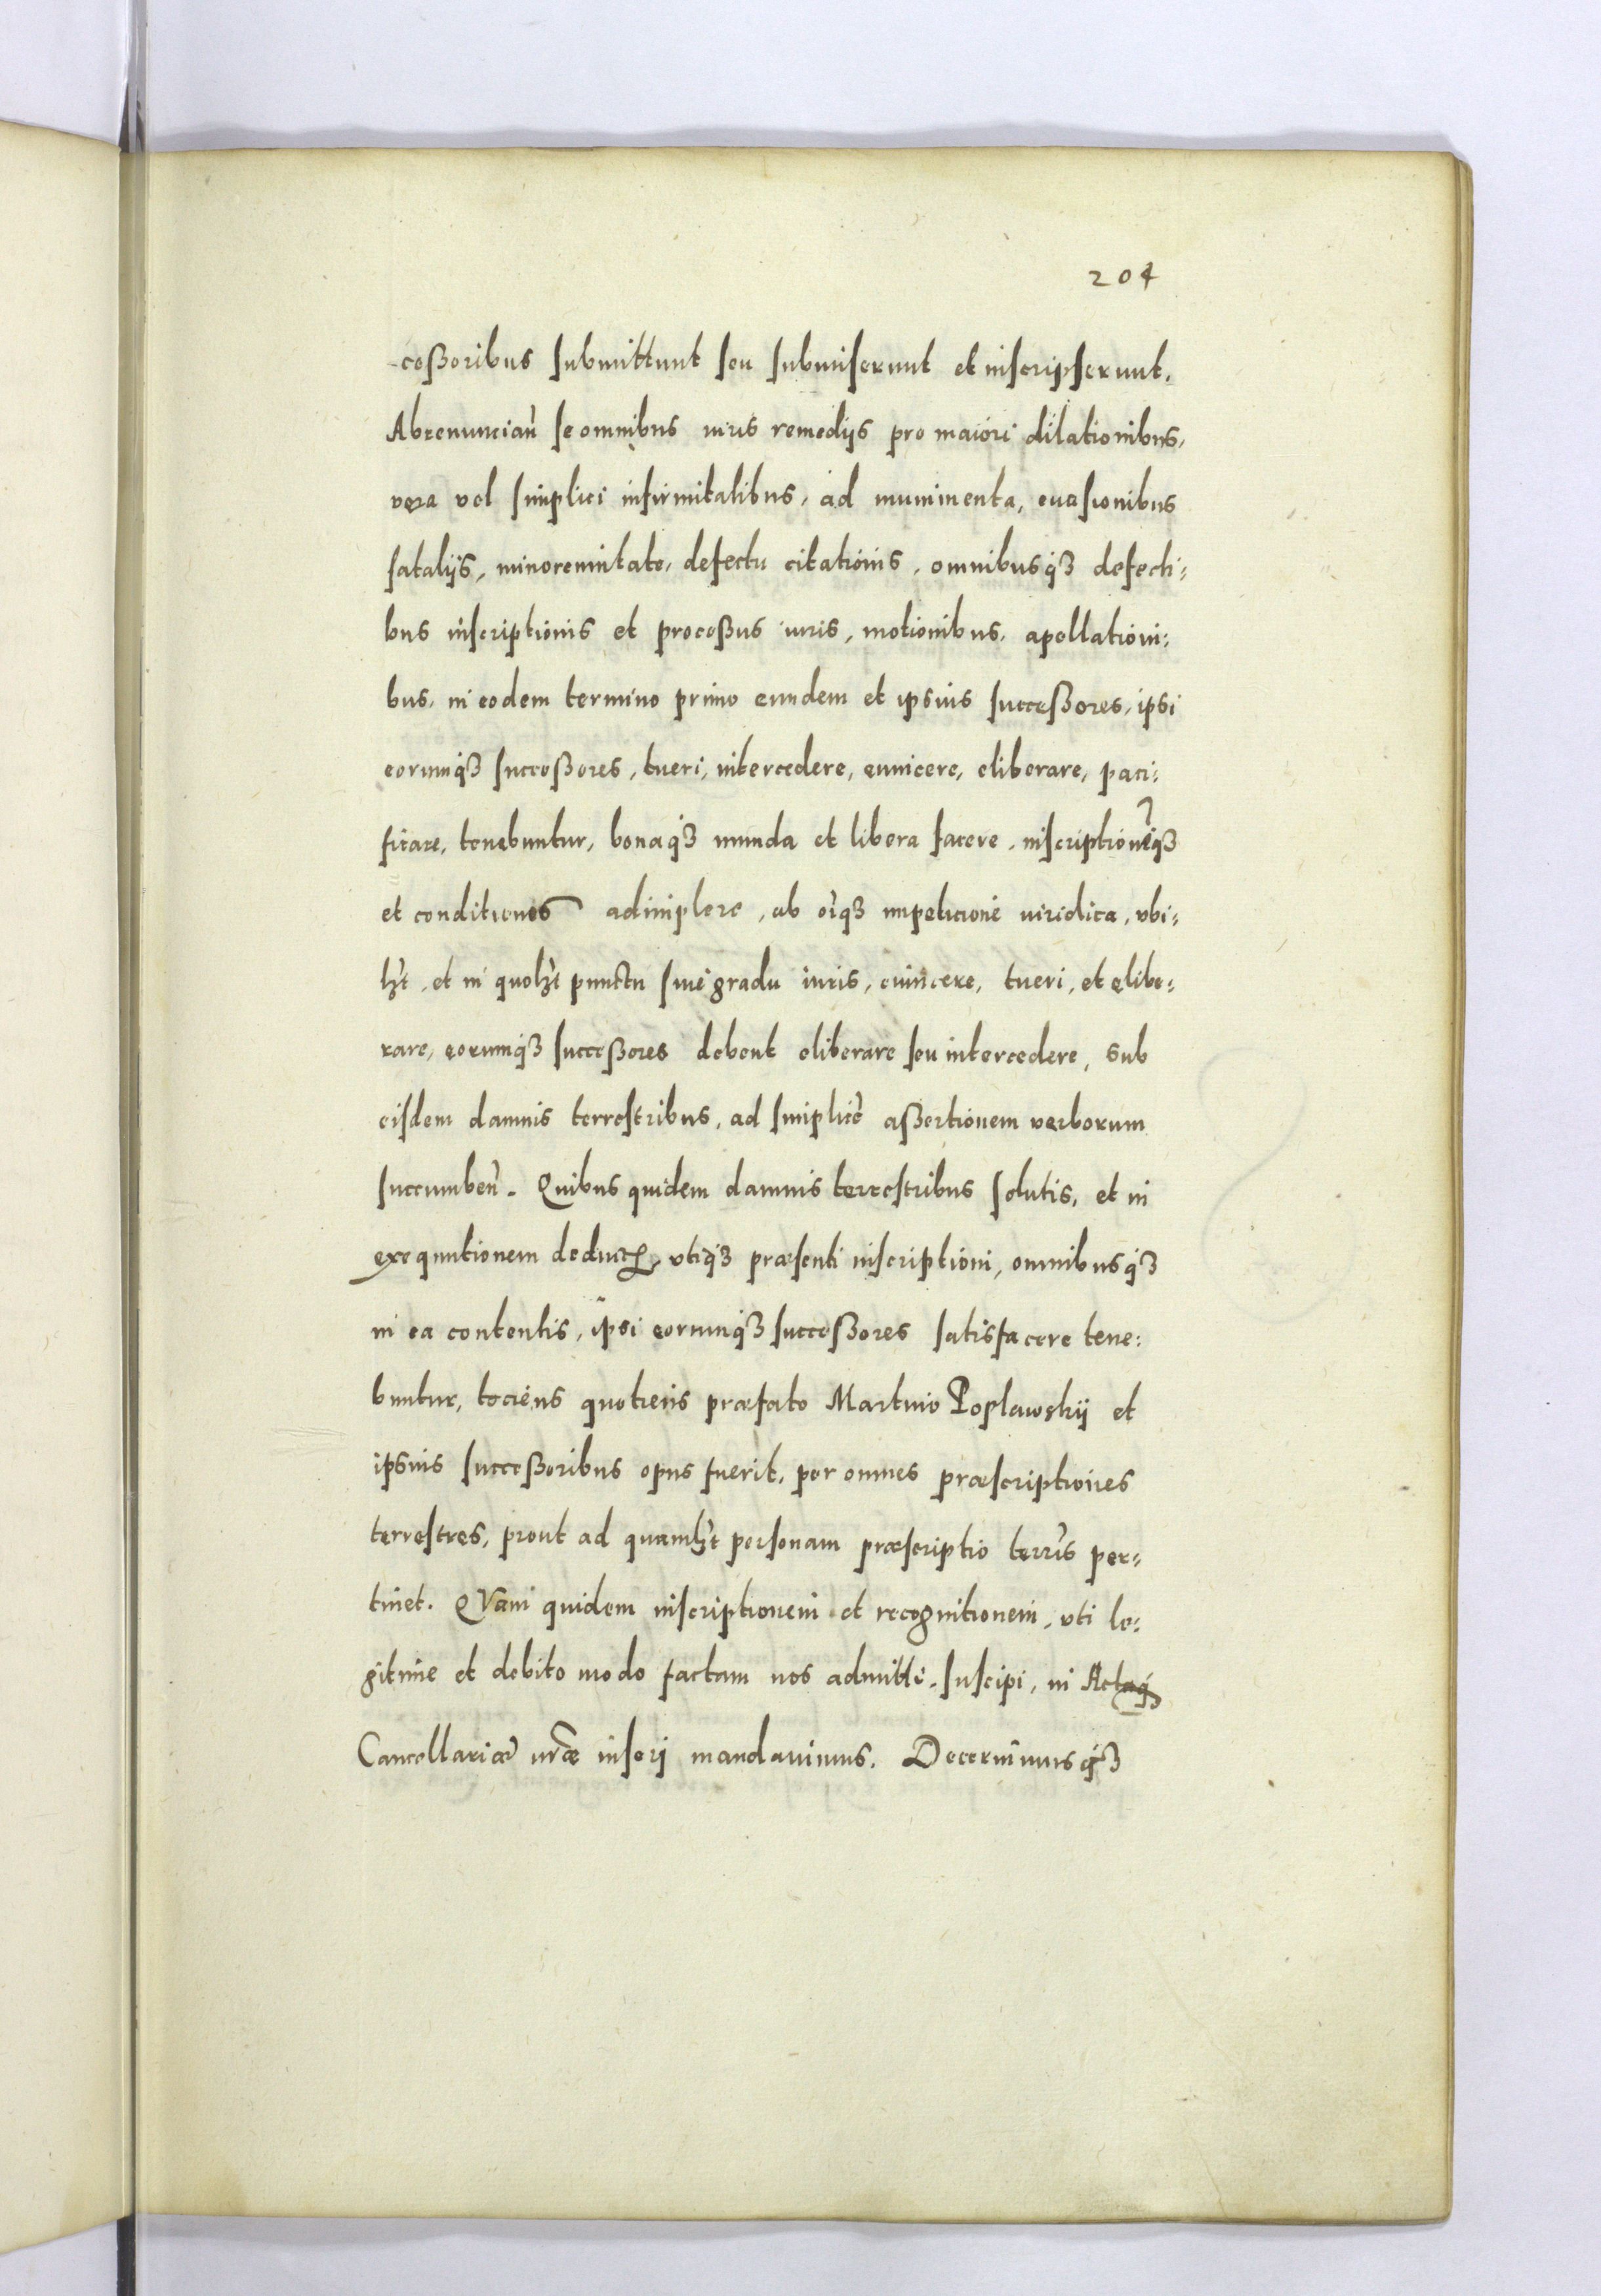 204
-cessoribus submittunt seu submiserunt et inscripserunt.
Abrenuncian̄ se omnibus iuris remedijs pro maiori dilationibus,
vera vel simplici infirmitatibus, ad munimenta, euasionibus
fatalijs, minorennitate, defectu citationis, omnibusq́ꝫ defecti:
bus inscriptionis et processus iuris, motionibus, apellationi:
bus, in eodem termino primo eundem et ipsius successores, ipsi
eorumq́ꝫ successores, tueri, intercedere, euincere, eliberare, paci:
ficare, tenebuntur, bonaq́ꝫ munda et libera facere, inscriptionēq́ꝫ
et conditiones adimplere, ab oīqꝫ impeticione iuridica, vbi:
lꝫt, et in quolꝫt punctu siue gradu iuris, euincere, tueri, et elibe:
rare, eorumq́ꝫ successores debent eliberare seu intercedere, sub
eisdem damnis terrestribus, ad simplicē assertionem verborum
succumben̄. Quibus quidem damnis terrestribus solutis, et in
exequutionem deduct, vtiq́ꝫ præsenti inscriptioni, omnibusq́ꝫ
in ea contentis, ipsi eorumq́ꝫ successores satisfacere tene:
buntur, tociens quotiens præfato Martino Poplawskij et
ipsius successoribus opus fuerit, per omnes præscriptiones
terrestres, prout ad quamlꝫt personam præscriptio terrīs per:
tinet. QVam quidem inscriptionem et recognitionem, vti le:
gitime et debito modo factam nos admitti, suscipi, in Actaq́
Cancellariæ nr̄æ inseri mandauimus. Decernimusq́ꝫ